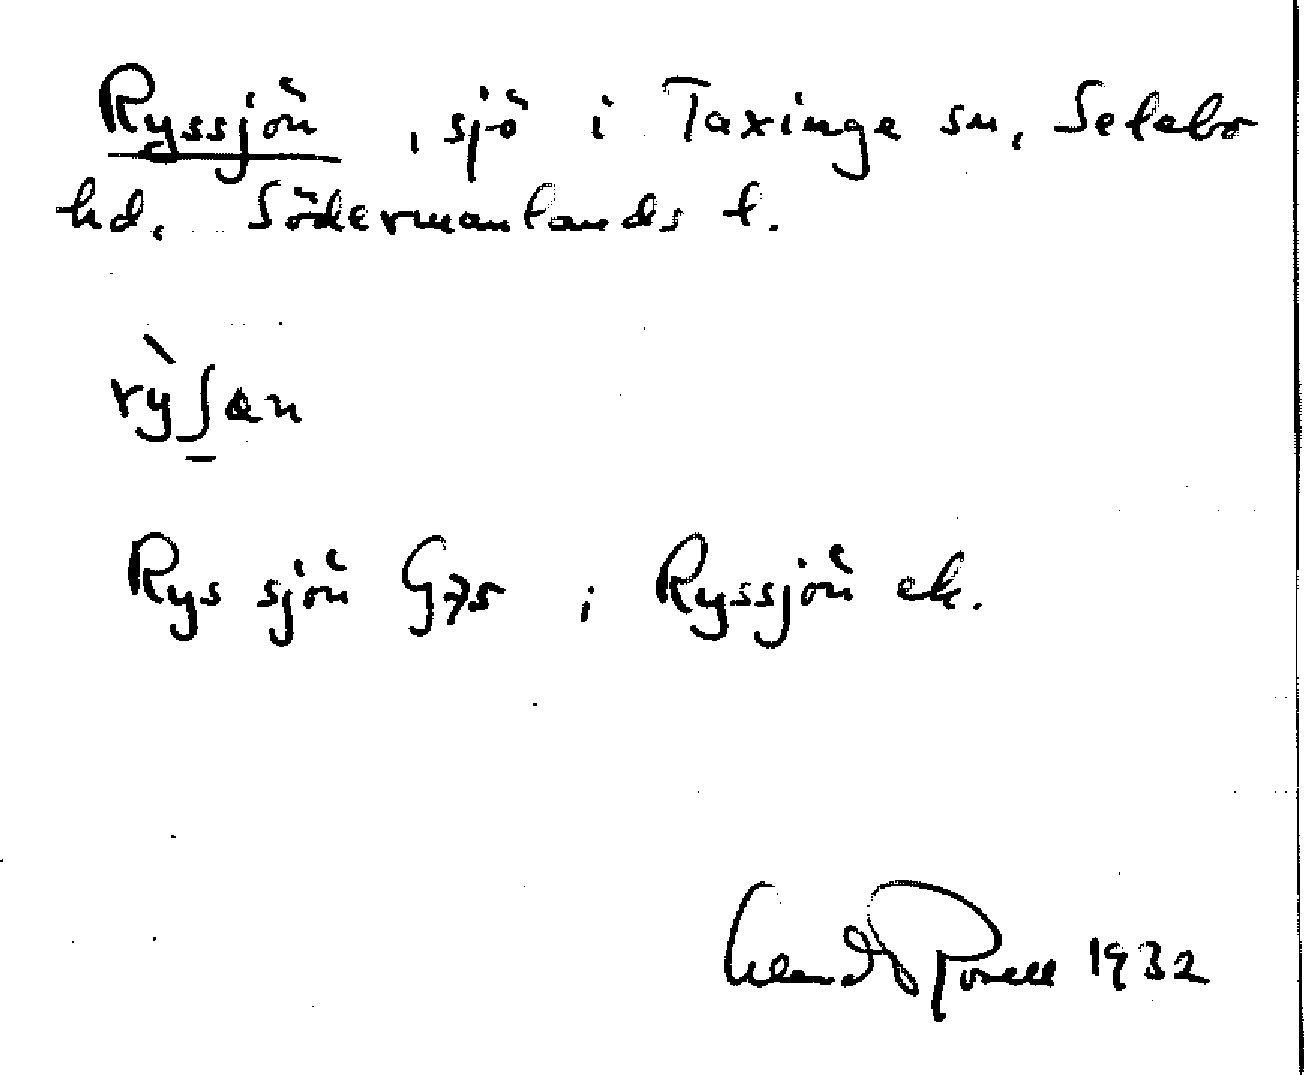 Ryssjön, sjö i Taxinge sn, Selebo
hd. Södermanlands l.
Rys sjön G75; Ryssjön ek.
1932